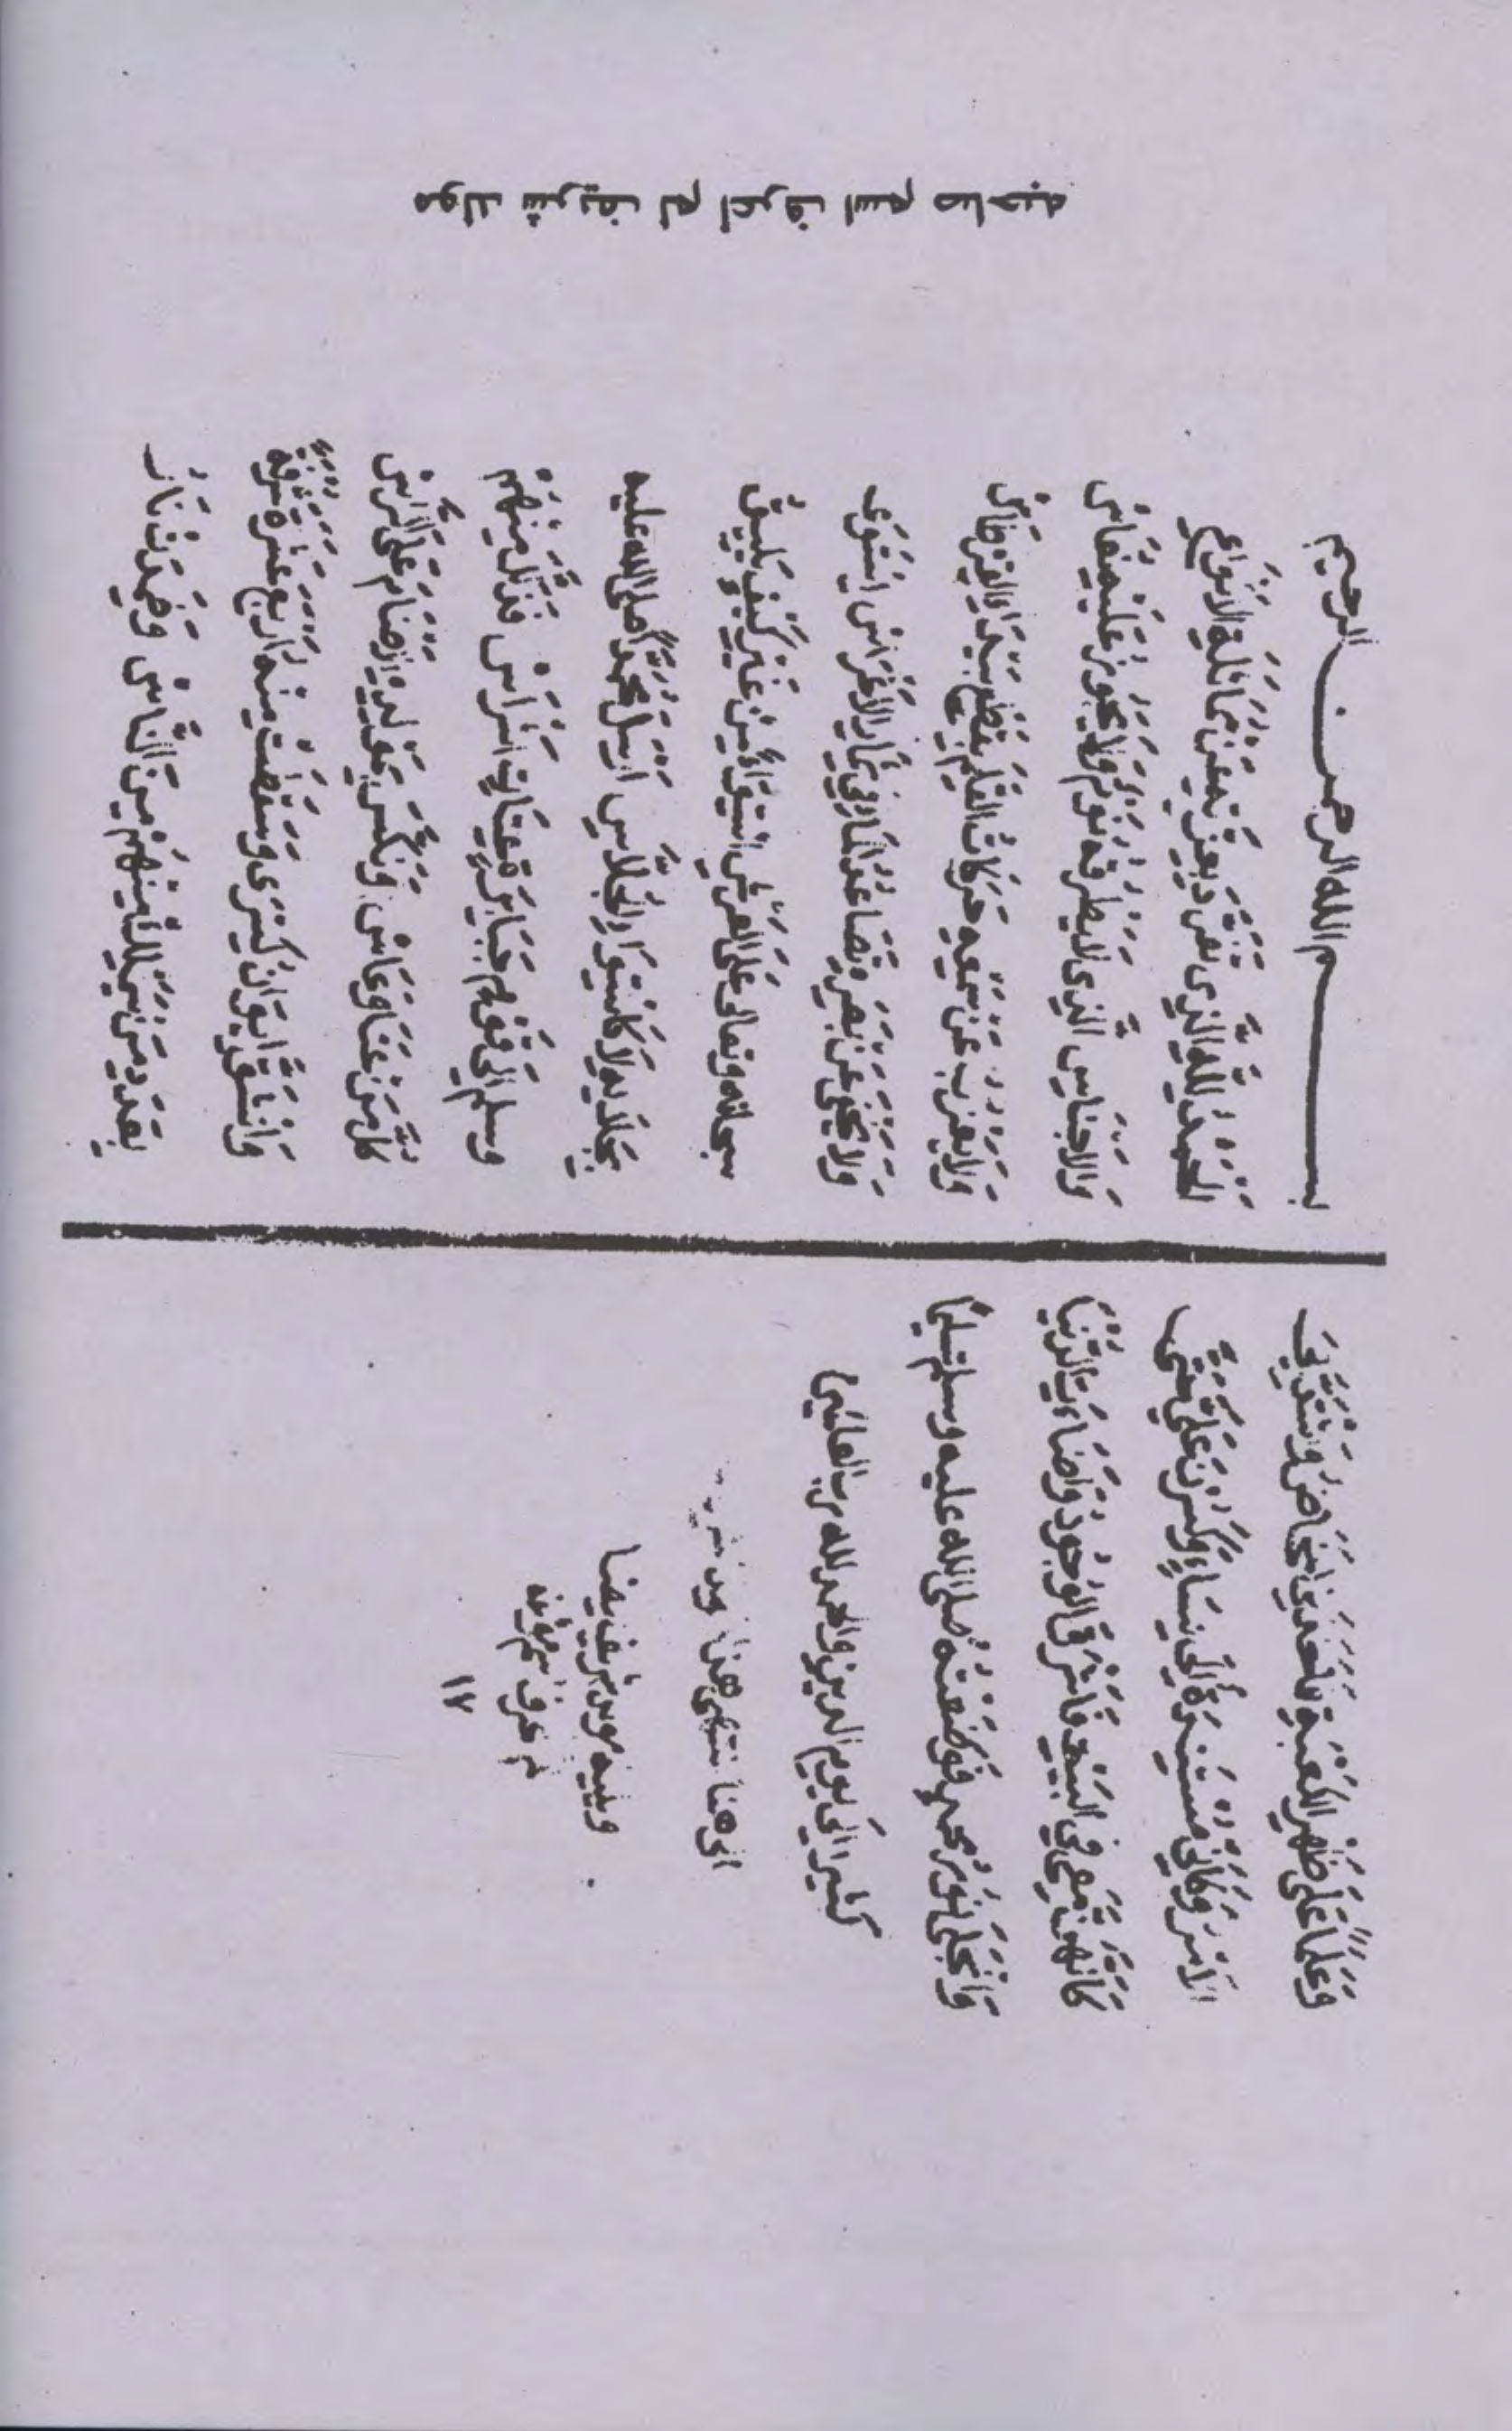 مولد شريف لم اعرف اسم صاحبه
وَعَلَمًا عَلَى ظَهْرِ الْكَعْبَةِ فَاَخَذَنِي الْمَخَاضُ وَيَشْتَدُّ بِيَ
الْاَمْرُ وَكَاَنِّي مُسْتَنِدَةٌ اِلَى نِسَاءٍ وَكَثُرْنَ عَلَيَّ حَتَّى
كَاَنَّهُنَّ مَعِي فِي الْبَيْتِ فَاَشْرَقَ الْوُجُودُ وَاَضَاءَتِ الدُّنْيَا
وَانْجَلَى بِنُورِ مُحَمَّدٍ فَوَضَعَتْهُ صلى الله عليه وسلم تسليما
كثيرا الى يوم الدين والحمد لله رب العالمين
الى هنا انتهى هذا
ويليه مولد شريف ايضا
لم نعرف اسم مؤلفه
١٧
بسم الله الرحمن الرحيم
اَلْحَمْدُ لِلّٰهِ الَّذِي تَعَزَّزَ عَنْ مُمَاثَلَةِ الْاَنْوَاعِ
وَالْاَجْنَاسِ الَّذِي لَا يَطْرُقُهُ نَوْمٌ وَلَا يَجُوزُ عَلَيْهِ نُعَاسْ
وَلَا يَعْزُبُ عَنْ سَمْعِهِ حَرَكَاتُ الْقَلَمِ يَقْطَعُ بَيْدَاءَ الْقِرْطَاسْ
وَلَا يَخْفَى عَنْ بَصَرِهِ تَصَاعُدُ الْمَاءِ فِي ثِمَارِ الْاَغْرَاسْ اِسْتَوَى
سبحانه وتعالى عَلَى الْعَرْشِ اسْتِوَاءً مِنْ غَيْرِ كَيْفٍ يَلِيقُ
بِجَلَالِهِ لَا كَاسْتِوَاءِ الْجُلَّاسِ اَرْسَلَ مُحَمَّدًا صلى الله عليه
وسلم اِلَى قَوْمٍ جَبَابِرَةٍ عُتَاةٍ اَشْرَاسْ فَذَلَّلَ مِنْهُمْ
كُلَّ مَنْ عَتَا وَعَاسْ وَنَكَّسَ بِمَوْلِدِهِ الْاَصْنَامَ عَلَى الرَّاْسْ
وَانْشَقَّ اِيوَانُ كِسْرَى وَسَقَطَتْ مِنْهُ اَرْبَعَ عَشْرَةَ شُرْفَةً
بِعَدَدِ مَنْ يَمْلِكُ مِنْهُمْ مِنَ النَّاسْ وَخَمِدَتْ نَارُ